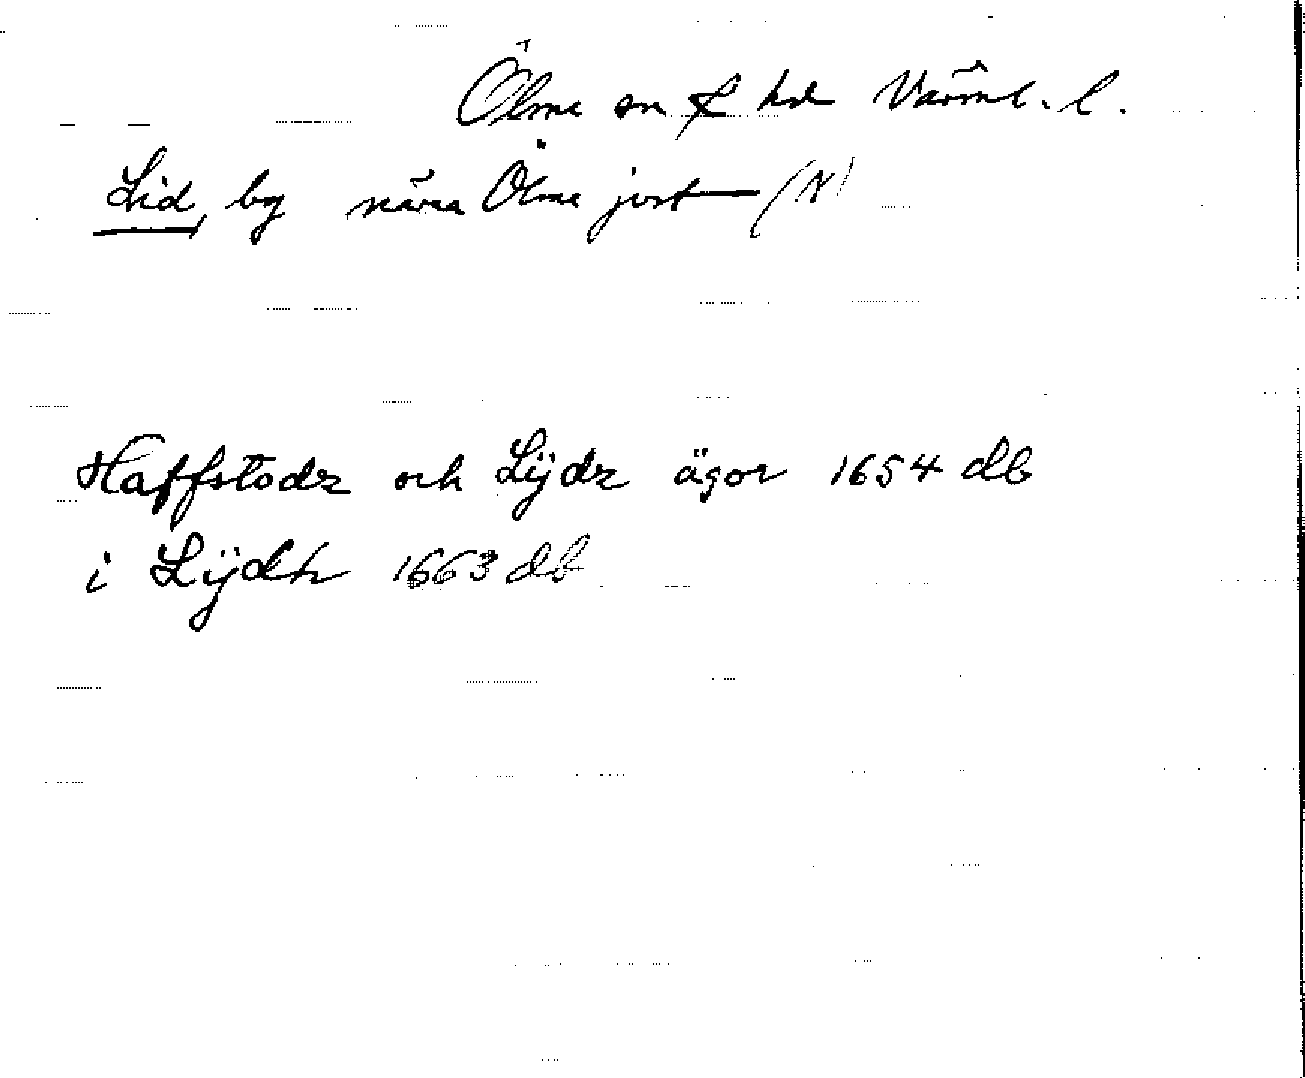 Ölme sn & hd Värml. l.
Lid, by nära Ölme jvst (N)
Haffstodz och Lijdz ägor 1654 db
i Lijdh 1663 db